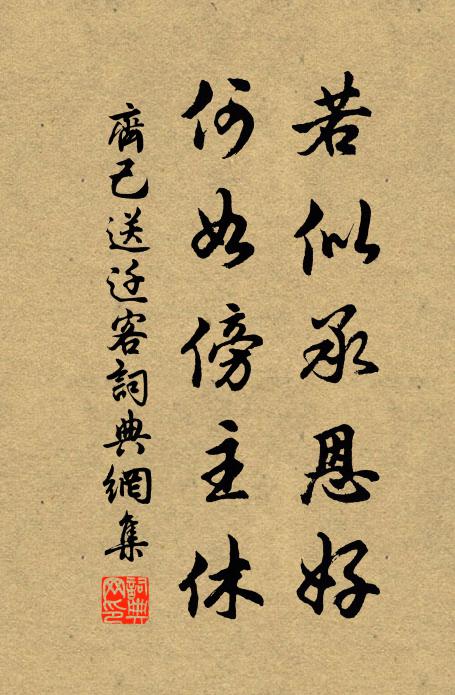 若似承恩好
何如傍主休
齊己送迁客詞典網集
詞典网印